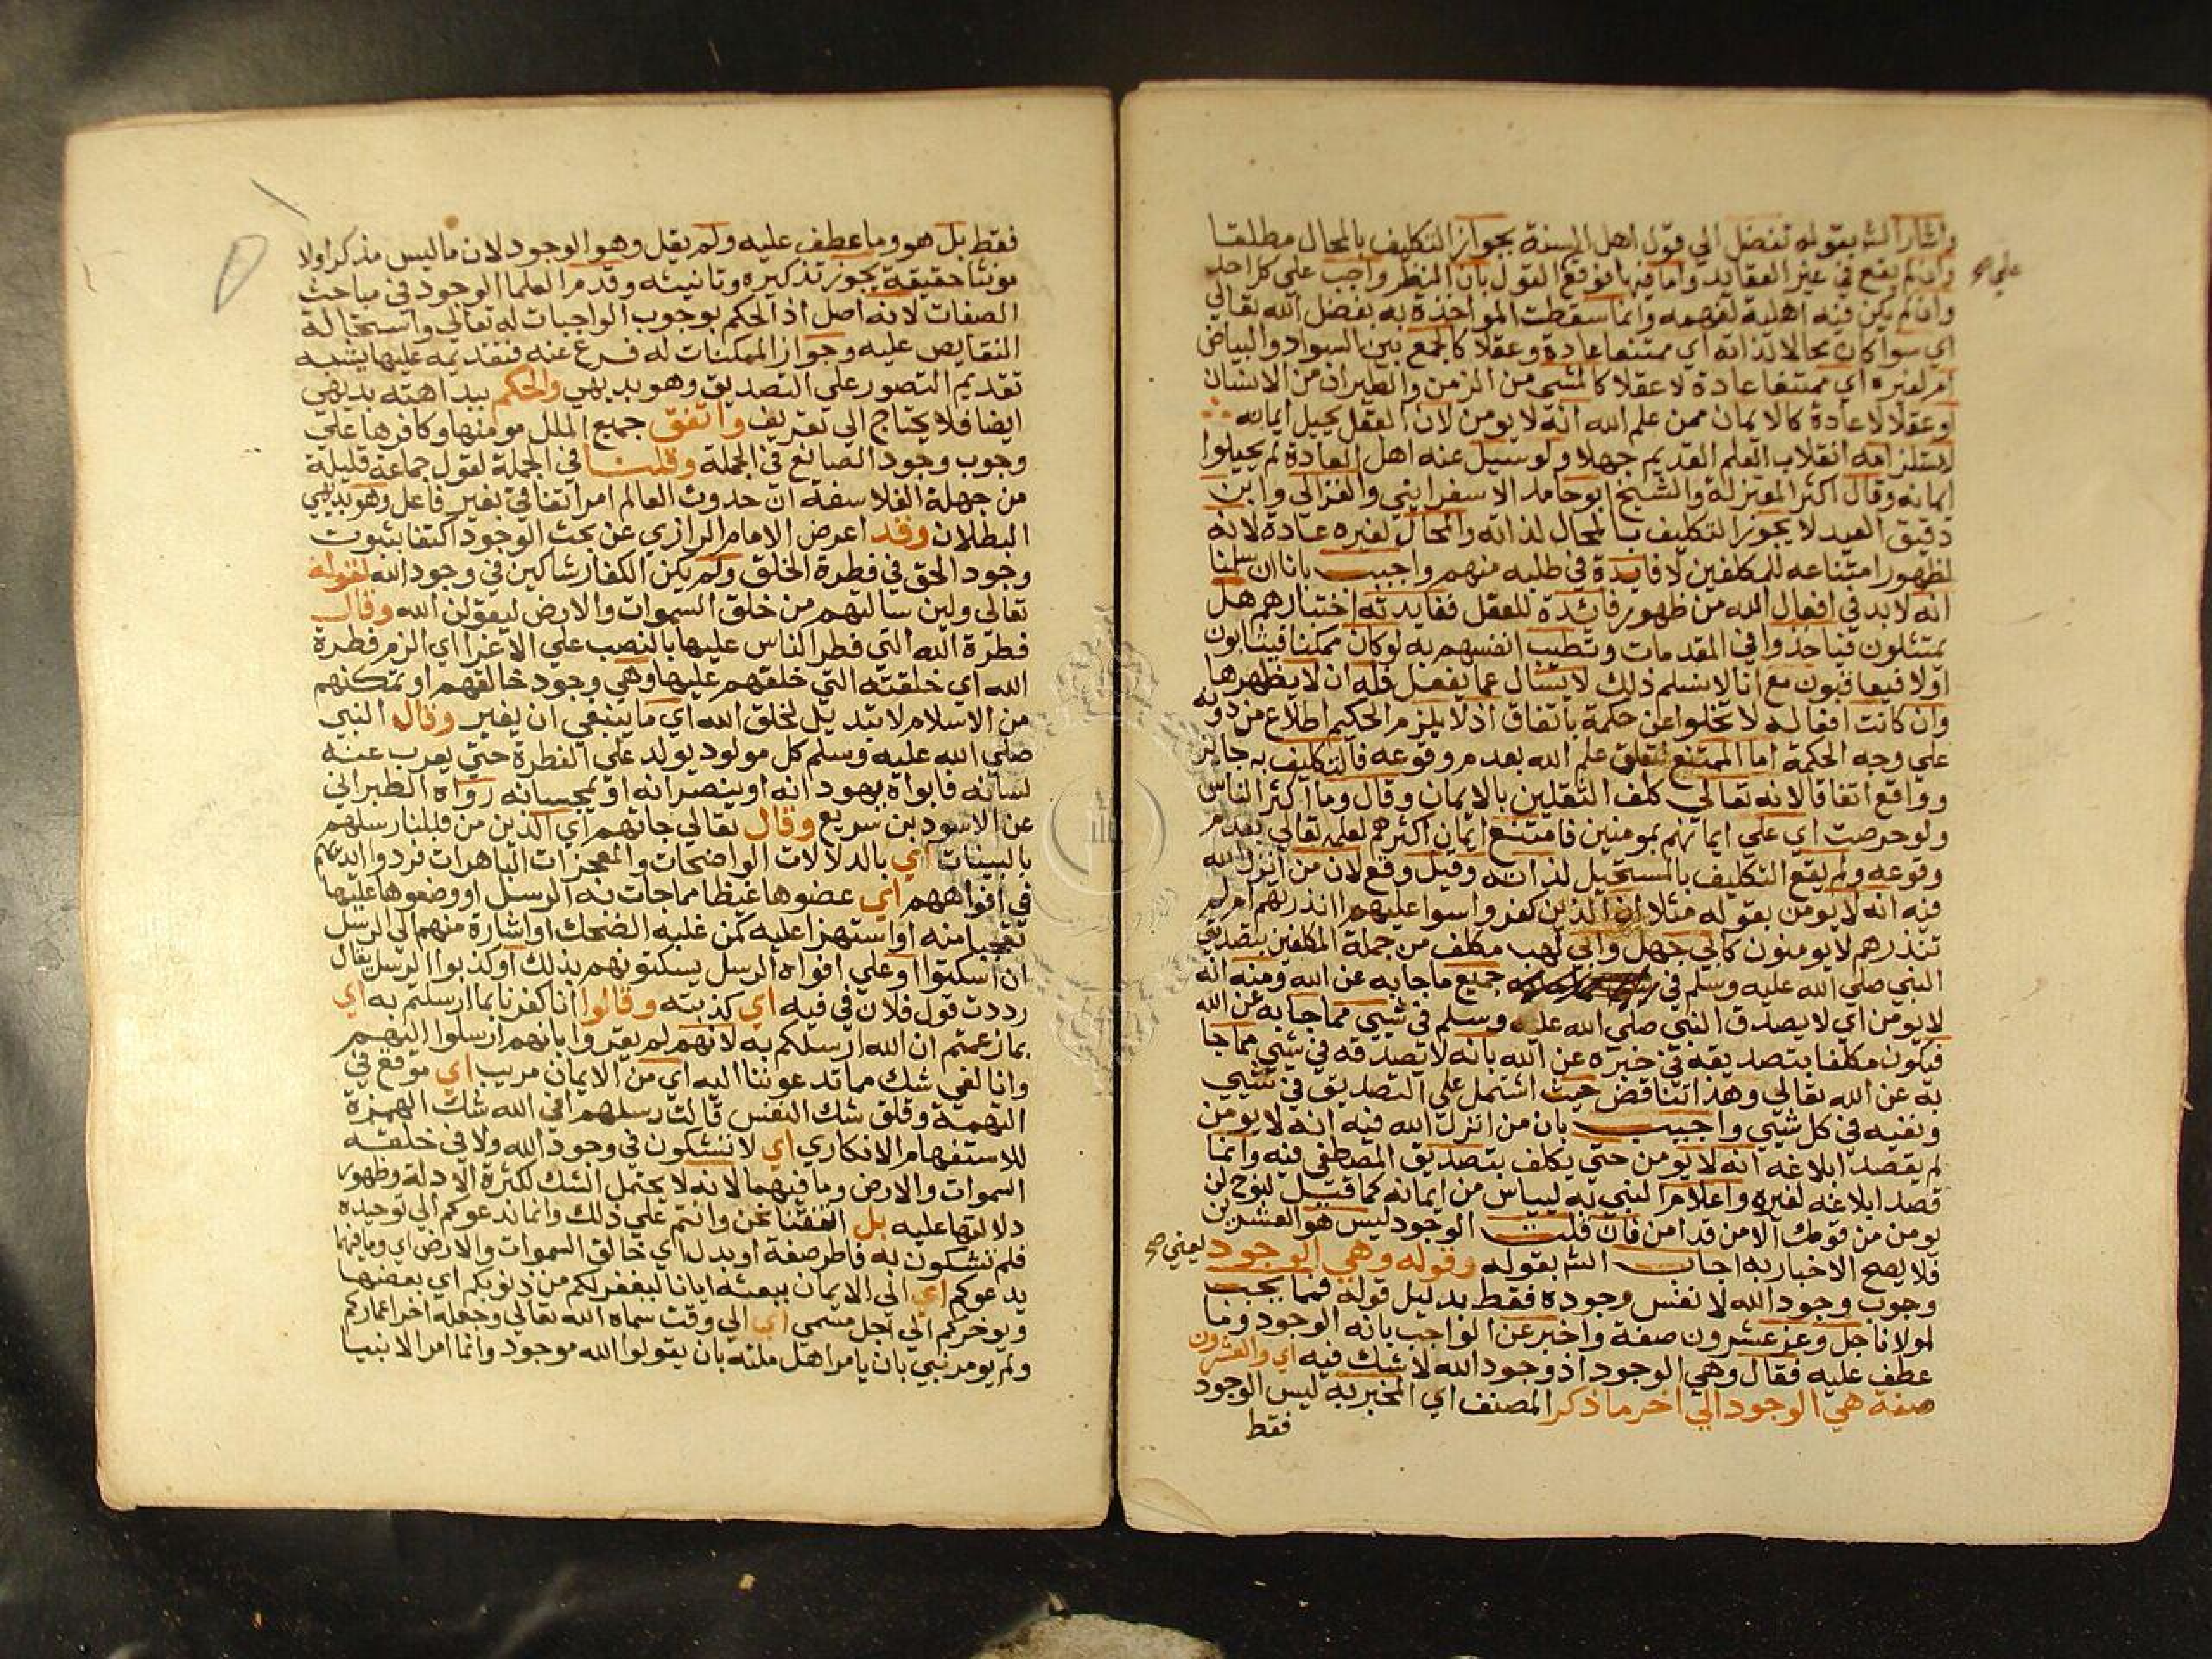 واشار الش بقوله تفضل الي قول اهل السنة بجواز التكليف بالمحال مطلقا
وان لم يقع في غير العقايد واما فيها فوقع القول بان النظر واجب على كل احد
علي صح
وان لم يكن فيه اهلية لفهمه وانما سقطت المواخذة به بفضل الله تعالي
اي سوا كان محالا لذاته اي ممتنعا عادة وعقلا كالجمع بين السواد والبياض
ام لغيره اي ممتنعا عادة لا عقلا كالمشي من الزمن والطيران من الانسان
او عقلا لا عادة كالايمان ممن علم الله انه لا يومن لان العقل يحيل ايمانه
لاستلزامه انقلاب العلم القديم جهلا ولو سيل عنه اهل العادة لم يحيلوا
ايمانه وقال اكثر المعتزلة والشيخ ابو حامد الاسفرايني والغزالي وابن
دقيق العيد لا يجوز التكليف بالمحال لذاته والمحال لغيره عادة لانه
لظهور امتناعه للمكلفين لا فايدة في طلبه منهم واجيب بانا ان سلمنا
انه لابد في افعال الله من ظهور فائدة للعقل ففايدته اختبارهم هل
يمتثلون فياخذوا في المقدمات وتطيب انفسهم به لو كان ممكنا فيثابون
اولا فيعاقبون مع انا لا نسلم ذلك لا يسال عما يفعل فله ان لا يظهرها
وان كانت افعاله لا تخلوا عن حكمة باتفاق اذ لا يلزم الحكيم اطلاع من دونه
علي وجه الحكمة اما الممتنع لتعلق علم الله بعدم وقوعه فالتكليف به جايز
وواقع اتفاقا لانه تعالي كلف الثقلين بالايمان وقال وما اكثر الناس
ولو حرصت اي علي ايمانهم بمومنين فامتنع ايمان اكثرهم لعلمه تعالي بعدم
وقوعه ولم يقع التكليف بالمستحيل لذاته وقيل وقع لان من انزل الله
فيه انه لا يومن بقوله مثلا ان الذين كفروا سوا عليهم اانذرتهم ام لم
تنذرهم لا يومنون كابي جهل وابي لهب مكلف من جملة المكلفين بتصديق
النبي صلي الله عليه وسلم في جميع ما جا به عن الله ومنه انه
لا يومن اي لا يصدق النبي صلي الله عليه وسلم في شيي مما جا به عن الله
فيكون مكلفا بتصديقه في خبره عن الله بانه لا تصدقه في شيي مما جا
به عن الله تعالي وهذا تناقض حيث اشتمل علي التصديق في شيي
ونفيه في كل شيي واجيب بان من انزل الله فيه انه لا يومن
لم يقصد ابلاغه انه لا يومن حتي يكلف بتصديق المصطفي فيه وانما
قصد ابلاغه لغيره واعلام النبي به لييأس من ايمانه كما قيل لنوح لن
يومن من قومك الا من قد امن فان قلت الوجود ليس هو العشرين
فلا يصح الاخبار به اجاب الش بقوله وقوله وهي الوجود يعني صح
وجوب وجود الله لا نفس وجوده فقط بدليل قوله فمما يجب
لمولانا جل وعز عشرون صفة واخبر عن الواجب بانه الوجود وما
عطف عليه فقال وهي الوجود اذ وجود الله لا شك فيه اي والعشرون
صفة هي الوجود الي اخر ما ذكر المصنف اي المخبر به ليس الوجود
فقط
فقط بل هو وما عطف عليه ولم يقل وهو الوجود لان ما ليس مذكرا ولا
مونثا حقيقة يجوز تذكيره وتانيثه وقدم العلما الوجود في مباحث
الصفات لانه اصل اذ الحكم بوجوب الواجبات له تعالي واستحالة
النقايص عليه وجواز الممكنات له فرع عنه فتقديمه عليها يشبه
تقديم التصور علي التصديق وهو بديهي والحكم ببداهته بديهي
ايضا فلا يحتاج الي تعريف واتفق جميع الملل مومنها وكافرها علي
وجوب وجود الصانع في الجملة وقلنا في الجملة لقول جماعة قليلة
من جهلة الفلاسفة ان حدوث العالم امر اتفاقي بغير فاعل وهو بديهي
البطلان وقد اعرض الامام الرازي عن بحث الوجود اكتفا بثبوت
وجود الحق في فطرة الخلق ولم يكن الكفار شاكين في وجود الله لقوله
تعالي ولين سالتهم من خلق السموات والارض ليقولن الله وقال
فطرة الله التي فطر الناس عليها بالنصب علي الاغرا اي الزم فطرة
الله اي خلقته التي خلقهم عليها وهي وجود خالقهم او تمكنهم
من الاسلام لا تبديل لخلق الله اي ما ينبغي ان يغير وقال النبي
صلي الله عليه وسلم كل مولود يولد علي الفطرة حتي يعرب عنه
لسانه فابواه يهودانه او ينصرانه او يمجسانه رواه الطبراني
عن الاسود بن سريع وقال تعالي جاتهم اي الذين من قبلنا رسلهم
بالبينات اي بالدلالات الواضحات والمعجزات الباهرات فردوا ايديهم
في افواههم اي عضوها غيظا مما جات به الرسل او وضعوها عليها
تعجبا منه او استهزا عليه كمن غلبه الضحك او اشارة منهم الي الرسل
ان اسكتوا او علي افواه الرسل يسكتونهم بذلك او كذبوا الرسل يقال
رددت قول فلان في فيه اي كذبته وقالوا انا كفرنا بما ارسلتم به اي
بما زعمتم ان الله ارسلكم به لانهم لم يقروا بانهم ارسلوا اليهم
وانا لفي شك مما تدعوننا اليه اي من الايمان مريب اي موقع في
التهمة وقلق شك النفس قالت رسلهم افي الله شك الهمزة
للاستفهام الانكاري اي لا تشكون في وجود الله ولا في خلقه
السموات والارض وما فيهما لانه لا يحتمل الشك لكثرة الادلة وظهور
دلالتها عليه بل اتفقنا نحن وانتم علي ذلك وانما ندعوكم الي توحيده
فلم تشكون به فاطر صفة او بدل اي خالق السموات والارض اي وما فيهما
يدعوكم اي الي الايمان ببعثه ايانا ليغفر لكم من ذنوبكم اي بعضها
ويوخركم الي اجل مسمي اي الي وقت سماه الله تعالي وجعله اخر اعماركم
ولم يومر نبي بان يامر اهل ملته بان يقولوا الله موجود وانما امر الانبيا